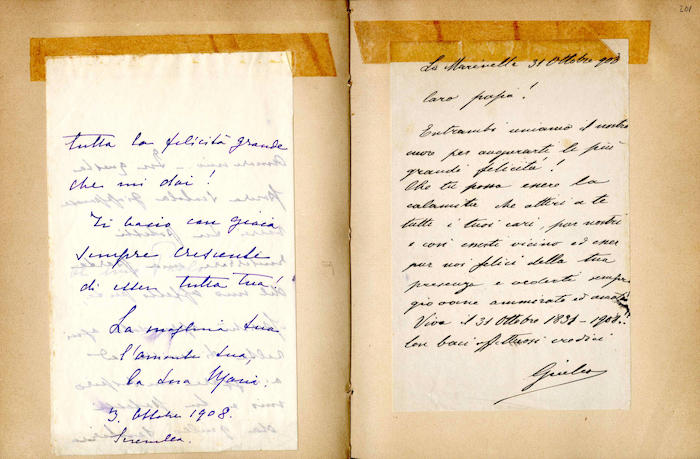 tutta la felicità grande
che mi dai!
Ti bacio con gioia
sempre crescente
di esser tutta tua!
La mogliina tua
l'amante tua,
la tua Maria.
3. Ottobre 1908.
201
La Marinella 31 Ottobre 908
Caro papà!
Entrambi uniamo il nostro
cuore per augurarti le più
grandi felicità!
Che tu possa essere la
calamita che attiri a te
tutti i tuoi cari, per
e così vicino ed esser
pur noi felici della tua
presenza e vederti sempre
giovane ammirato ed amato
Viva il 31 Ottobre 1831 - 1908!!
Con baci affettuosi credici
Giulio